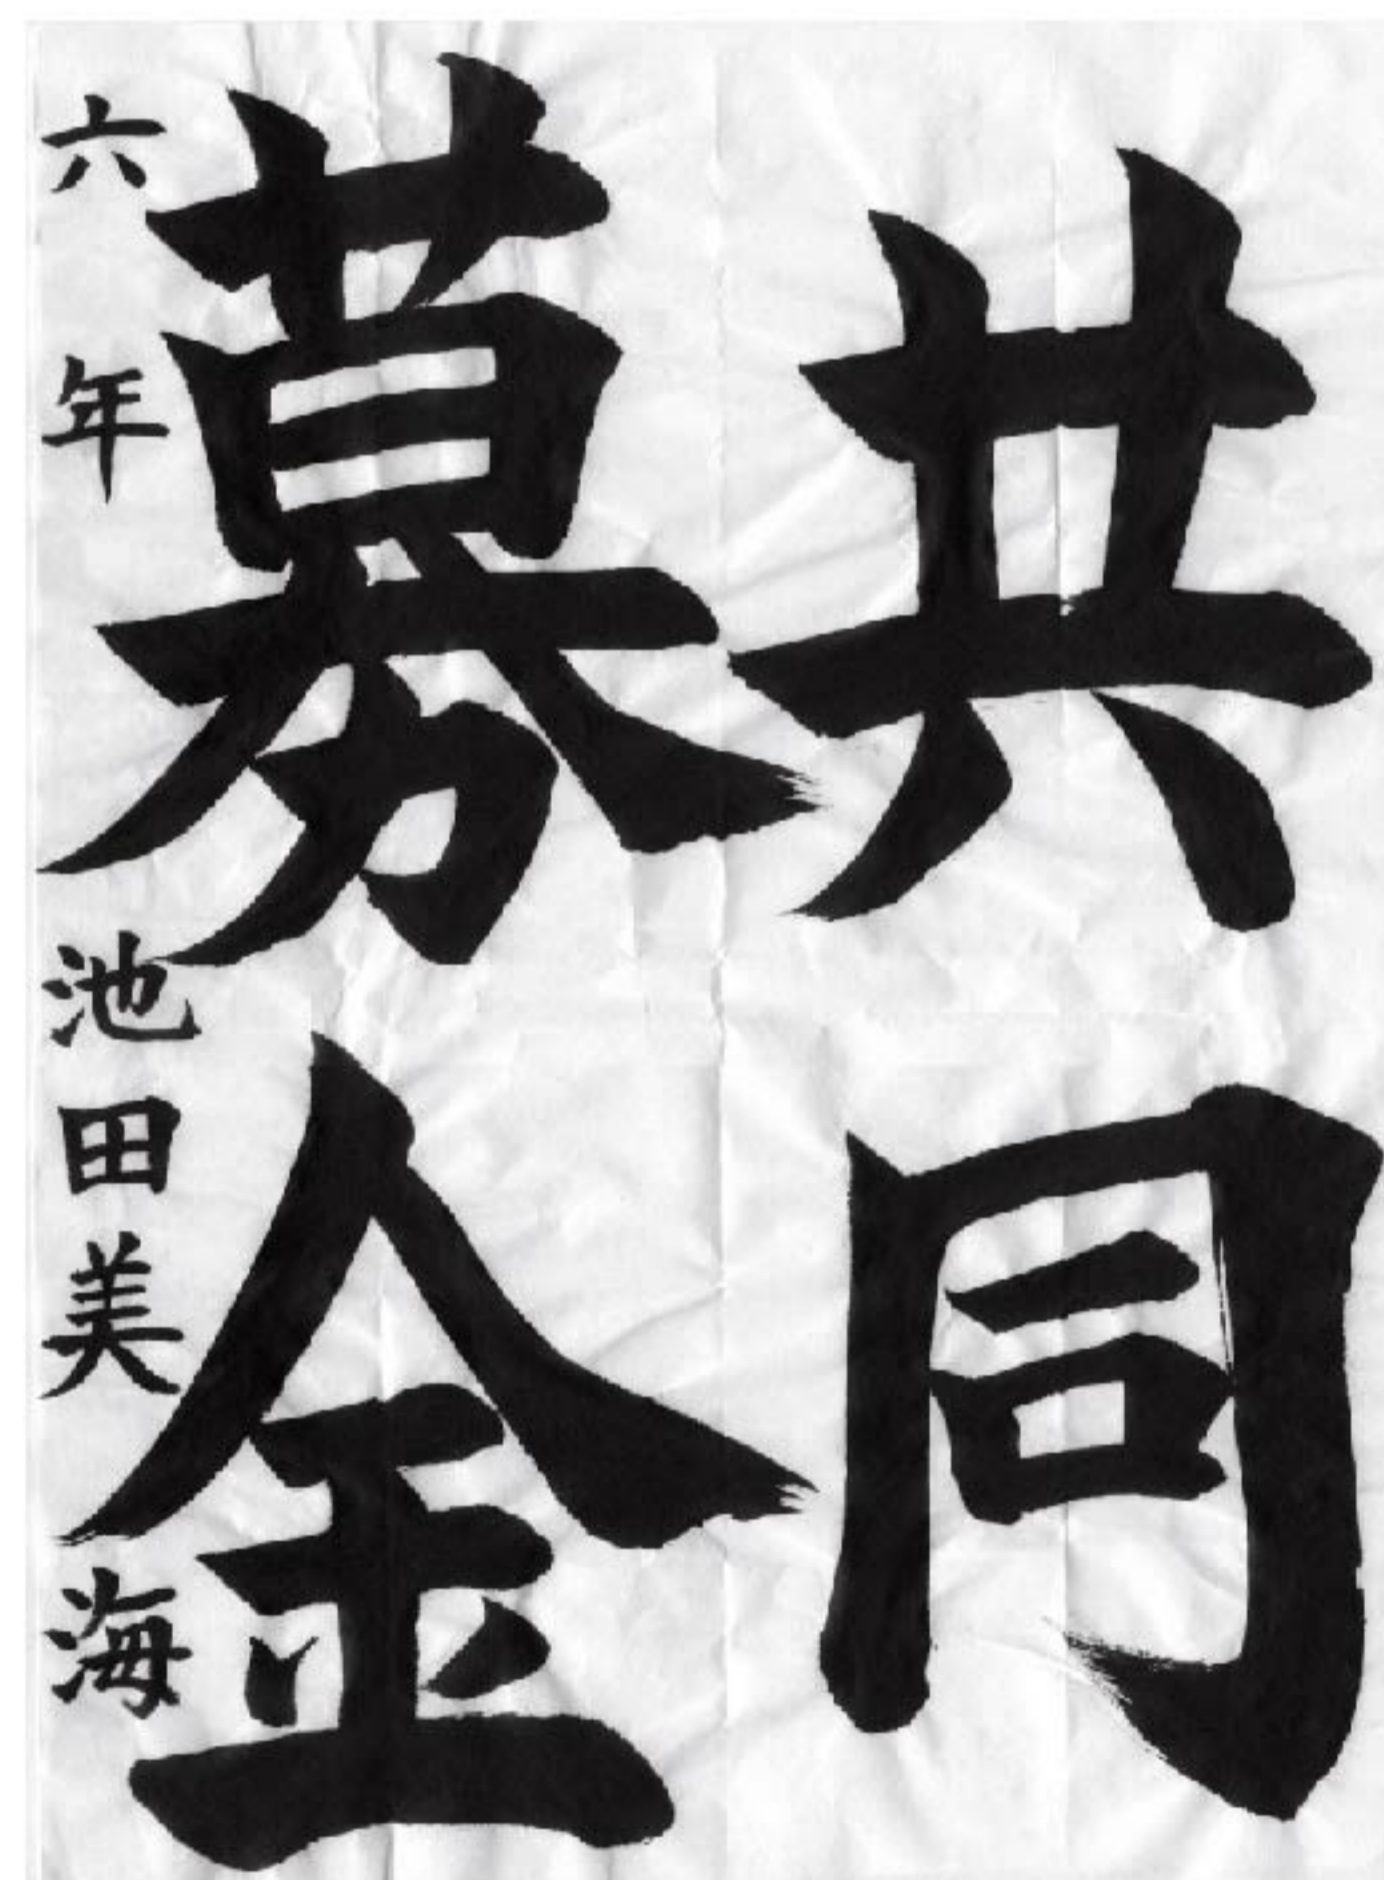 共同
募金
六年 池田美海